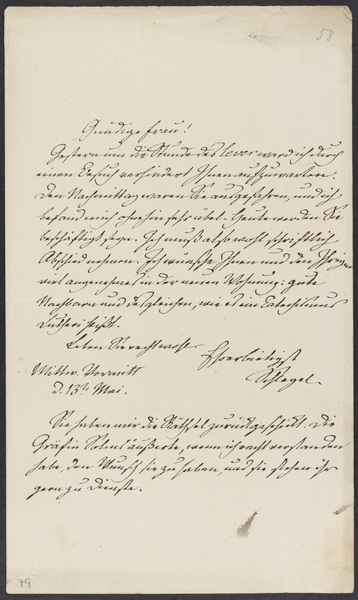 58
Gnädige Frau!
Gestern um die Stunde des lever ward ich durch
einen Besuch verhindert Ihnen aufzuwarten.
Den Nachmittag waren Sie ausgefahren, und ich
befand mich ohnehin sehr übel. Heute werden Sie
beschäftigt seyn. Ich muß also wohl schriftlich
Abschied nehmen. Ich wünsche Ihnen und den Ihrigen
viel angenehmes in der neuen Wohnung: gute
Nachbarn und desgleichen, wie es im Catechismus
Lutheri heißt.
Leben Sie recht wohl.
Ehrerbietigst
Schlegel.
Mittw. Vormitt
d. 13ten Mai.
Sie haben mir die Räthsel zurückgeschickt. Die
Gräfin Solms äußerte, wenn ich recht verstanden
habe, den Wunsch sie zu haben, und sie stehen ihr
gern zu Dienste.
49